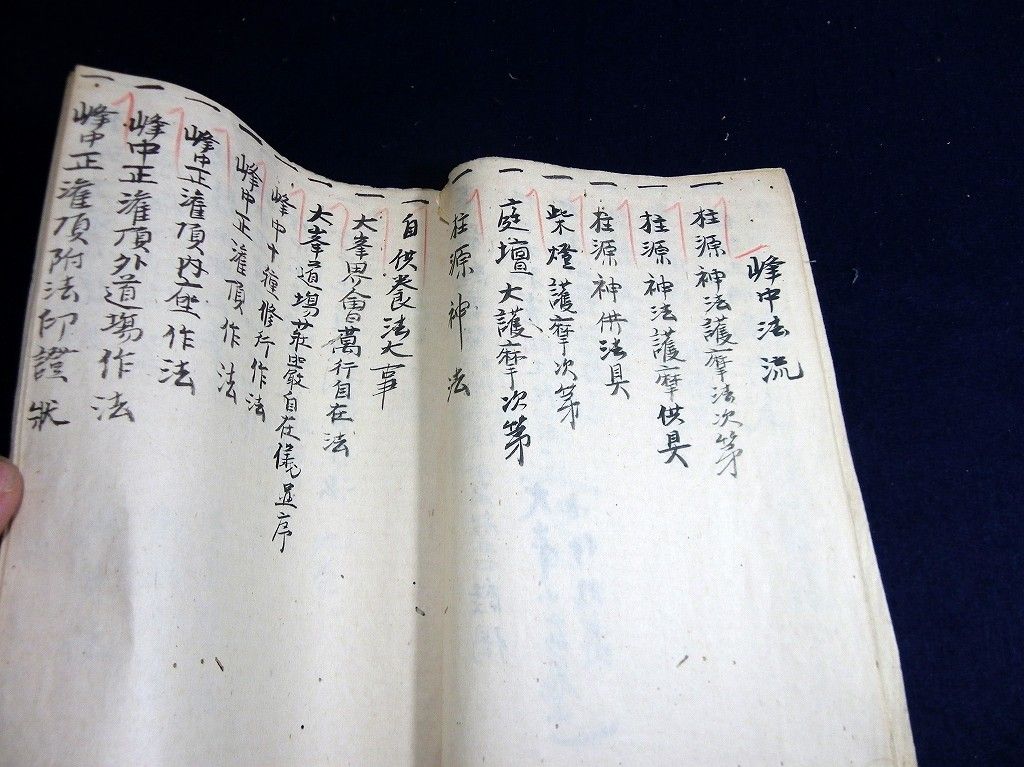 峰中法流
一 柱源神法護摩法次第
一 柱源神法護摩供具
一 柱源神供法具
一 柴燈護摩次第
一 庭壇大護摩次第
一 柱源神法
一 自供養法大事
一 大峯界會萬行自在法
一 大峯道場荘嚴自在儀
一 峰中十種修行作法
一 峰中正灌頂作法
一 峰中正灌頂内座作法
一 峰中正灌頂外道場作法
一 峰中正灌頂附法印證状